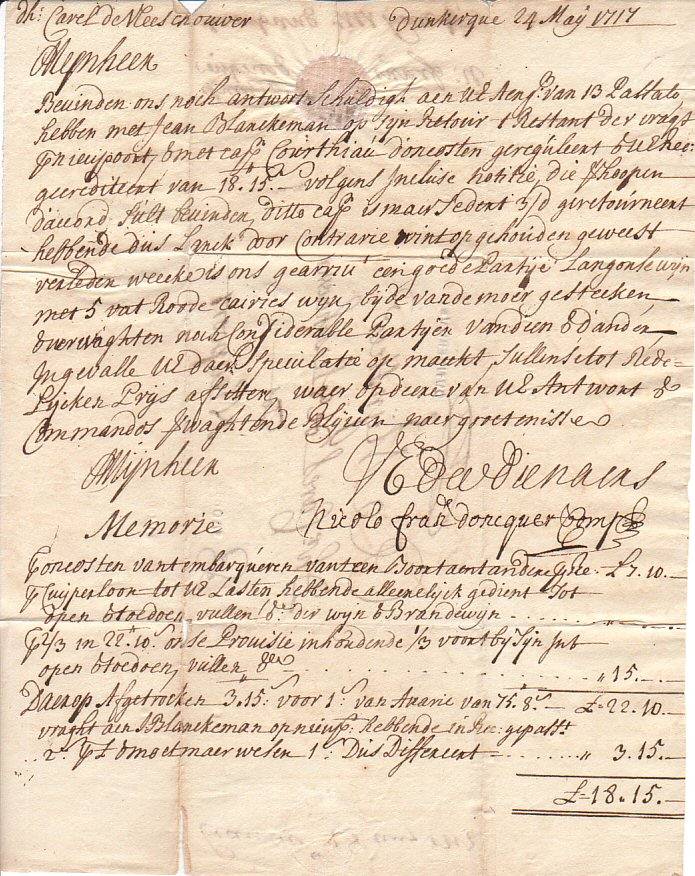 Sr. Carel de Vleeschouwer Dunkerque 24 Maÿ 1717
Mijnheer
Bevinden ons noch antwort schuldigh aen UE aengen. van 13 passato
hebben met Jean Blanckeman op syn retour t restant der vraght
nieupoort, & met capn. Courthiau doncosten gereguleert & UE rec:
gecrediteert van 18.15.- volgens incluse notitie, die hoopen
d'accord sult bevinden, ditto cap. is maer sedert 3/d geretourneert
hebbende dus lanck door contrarie wint opgehouden geweest
verleden weecke is ons gearriv. een goede partije Langonse wijn
met 5 vat Roode wijn, by de vande moer gesteecken,
& verwaghten noch considerable partijen van d'een & d'ander,
ingevalle UE daer speculatie op maeckt sullense tot rede-
lijcken prijs afsetten, waer op deere van UE antwort &
commandos verwaghtende blijven naer groetenisse
Mijnheer UEdew Dienaers
Memorie Nicolo fran doncquer Comp.
oncosten van t embarqueren van t een Boort aent andere £ 7.10.-
Cuyperloon tot UE lasten hebbende alleenelijck gedient tot
open & toedoen, vullen &a. der wijn & Brandewijn
2/3 in 22.10 s onse Provisie inhoudende 1/3 voort by syn
open & toedoen, vullen &a " 15.-
Daerop afgetrocken 3.15. voor 1 s. van avarie van 75.8 s £ 22.10.-
vraght aen J Blanckeman op nieup. hebbende in rec. gepasst.
2 s. & moet maer wesen 1 s. dus different " 3.15.-
£ 18.15.-